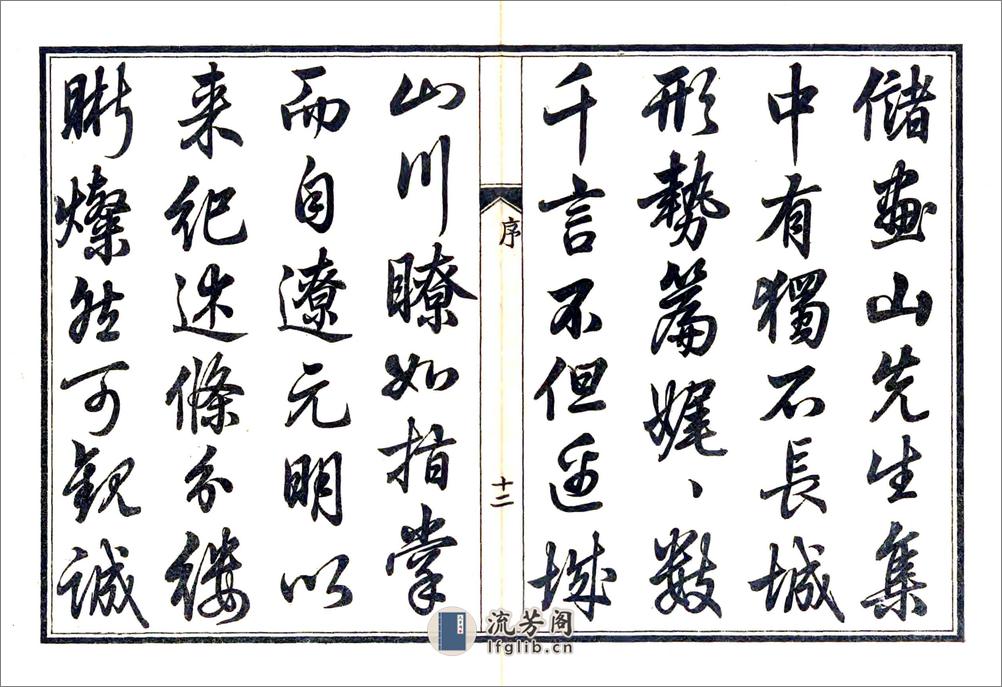 儲畫山先生集
中有獨石長城
形勢篇娓、數
千言不但邊城
序
十二
山川瞭如指掌
而自遼元明以
来紀述條分縷
晰燦然可觀誠
流芳阁
lfglib.cn